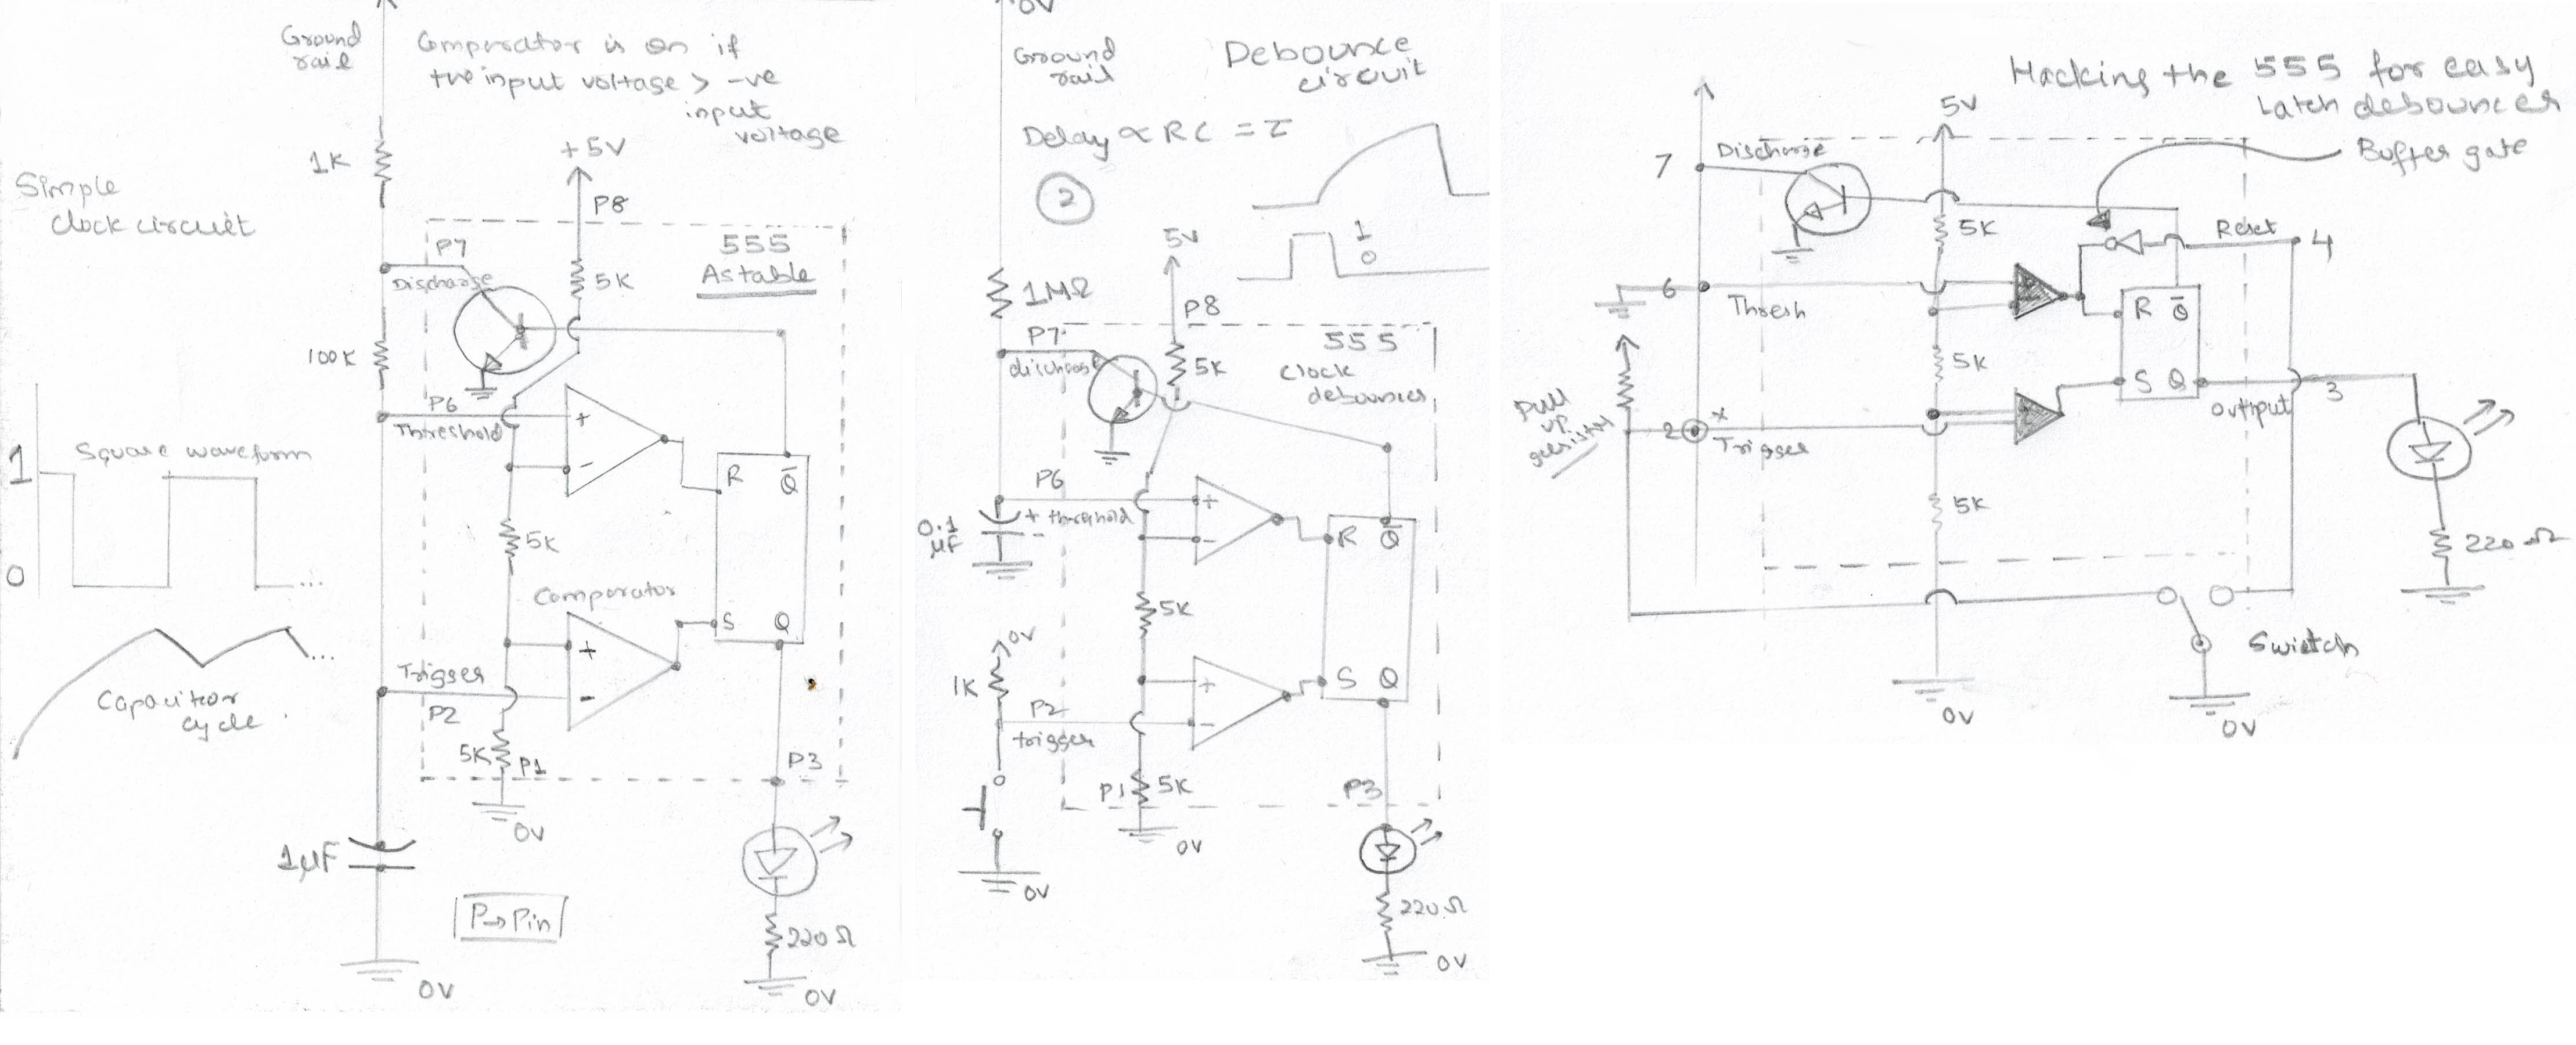 Ground
rail
Comparator is on if
+ve input voltage > -ve
input
voltage
1K
+5V
Simple
Clock circuit
P8
P7
555
Astable
Discharge
5K
100K
P6
+
Threshold
1
Square waveform
-
R
Q̄
5K
0
...
Comparator
S
Q
+
...
Trigger
-
Capacitor
cycle
P2
5K
P1
P3
0V
1µF
P→Pin
220Ω
0V
0V
0V
Ground
rail
Debounce
circuit
Delay ∝ RC = τ
2
1
0
5V
1MΩ
P8
P7
555
discharge
5K
Clock
debouncer
P6
+
0.1
µF
+ threshold
-
-
R
Q̄
5K
0V
1K
+
S
Q
P2
-
trigger
P1
5K
P3
0V
0V
220Ω
0V
Hacking the 555 for easy
Latch debouncer
5V
Buffer gate
7
Discharge
5K
Reset
4
6
Thresh
R
Q̄
5K
Pull
up
resistor
S
Q
2
x
Trigger
output
3
5K
220Ω
Swietch
0V
0V